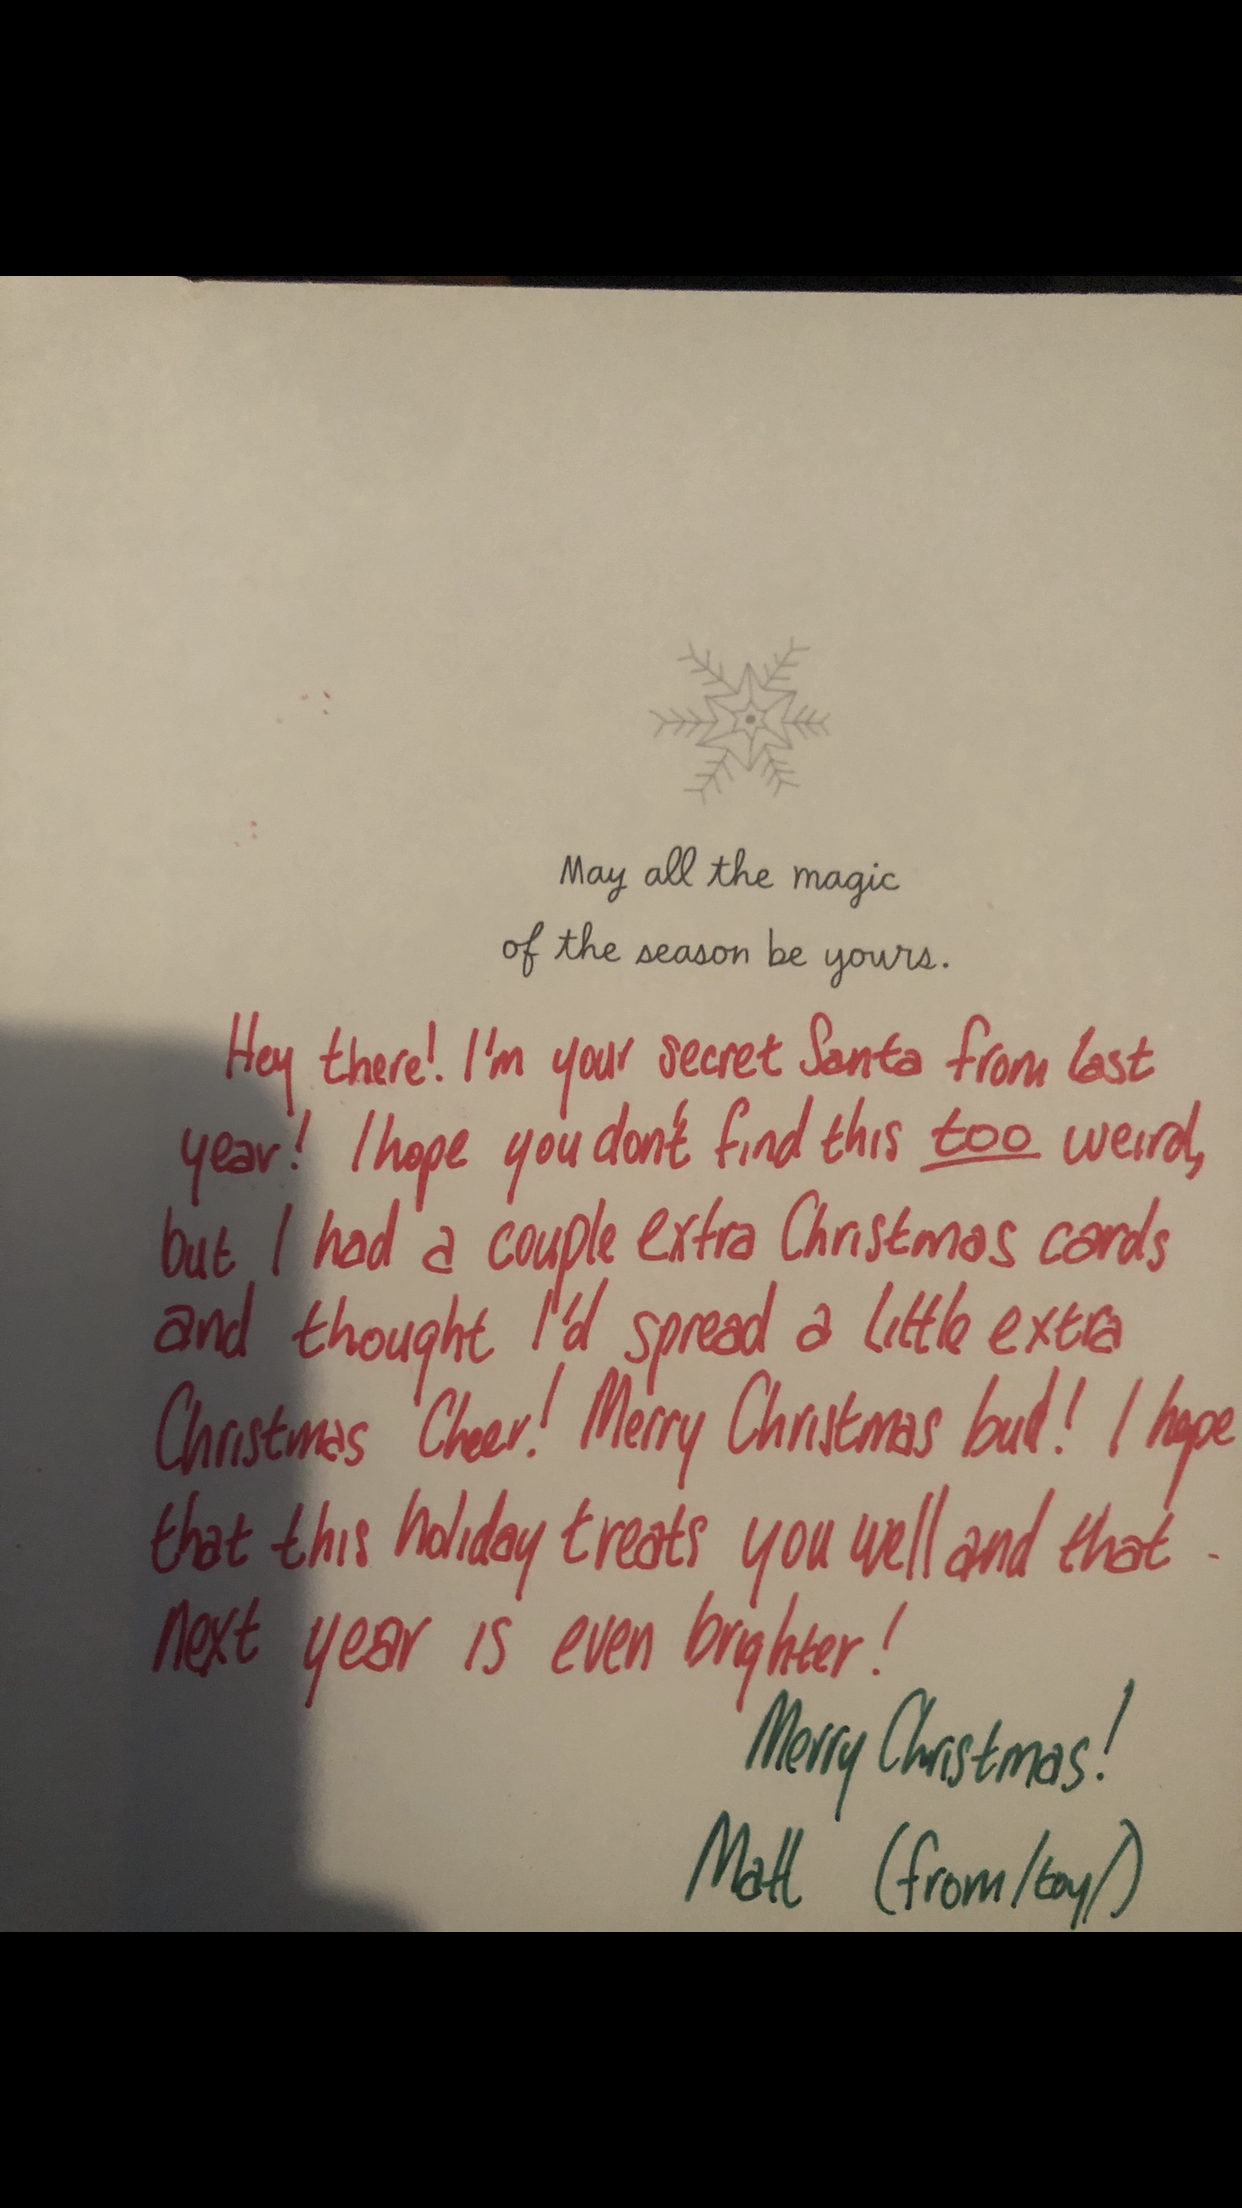 May all the magic
of the season be yours.
Hey there! I'm your secret Santa from last
year! I hope you don't find this too weird,
but I had a couple extra Christmas cards
and thought I'd spread a little extra
Christmas Cheer! Merry Christmas bud! I hope
that this holiday treats you well and that
next year is even brighter!
Merry Christmas!
Matt (from /toy/)